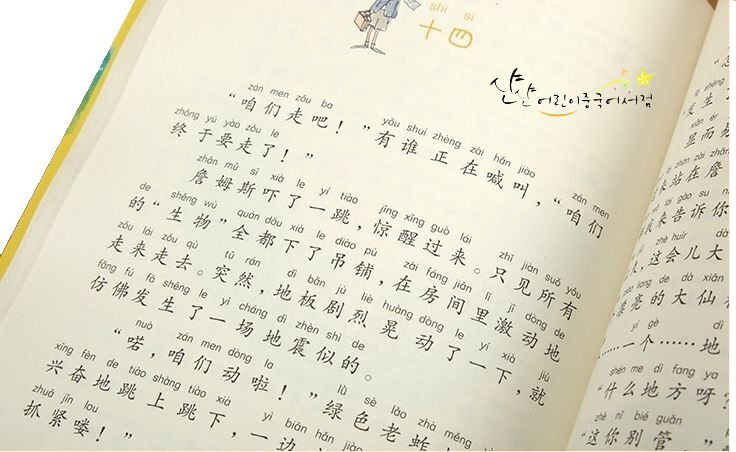 shí sì
十四
샨샨 어린이중국어서점
zán men zǒu ba yǒu shuí zhèng zài hǎn jiào zán men
“咱们走吧！”有谁正在喊叫，“咱们
zhōng yú yào zǒu le
终于要走了！”
zhān mǔ sī xià le yí tiào jīng xǐng guò lái zhǐ jiàn suǒ yǒu
詹姆斯吓了一跳，惊醒过来。只见所有
de shēng wù quán dōu xià le diào pù zài fáng jiān lǐ jī dòng de
的“生物”全都下了吊铺，在房间里激动地
zǒu lái zǒu qù tū rán dì bǎn jù liè huàng dòng le yí xià jiù
走来走去。突然，地板剧烈晃动了一下，就
fǎng fú fā shēng le yì chǎng dì zhèn shì de
仿佛发生了一场地震似的。
nuò zán men dòng la lǜ sè lǎo zhà měng
“喏，咱们动啦！”绿色老蚱
xīng fèn de tiào shàng tiào xià yì biān hǎn jiào
兴奋地跳上跳下，一边
zhuā jǐn lou
抓紧喽！”
显而易
来站在詹
我来告诉你
，这会儿大
漂亮的大仙
yí gè dì
……一个……地
shén me dì fang ya
“什么地方呀？
zhè nǐ bié guǎn
“这你别管，”